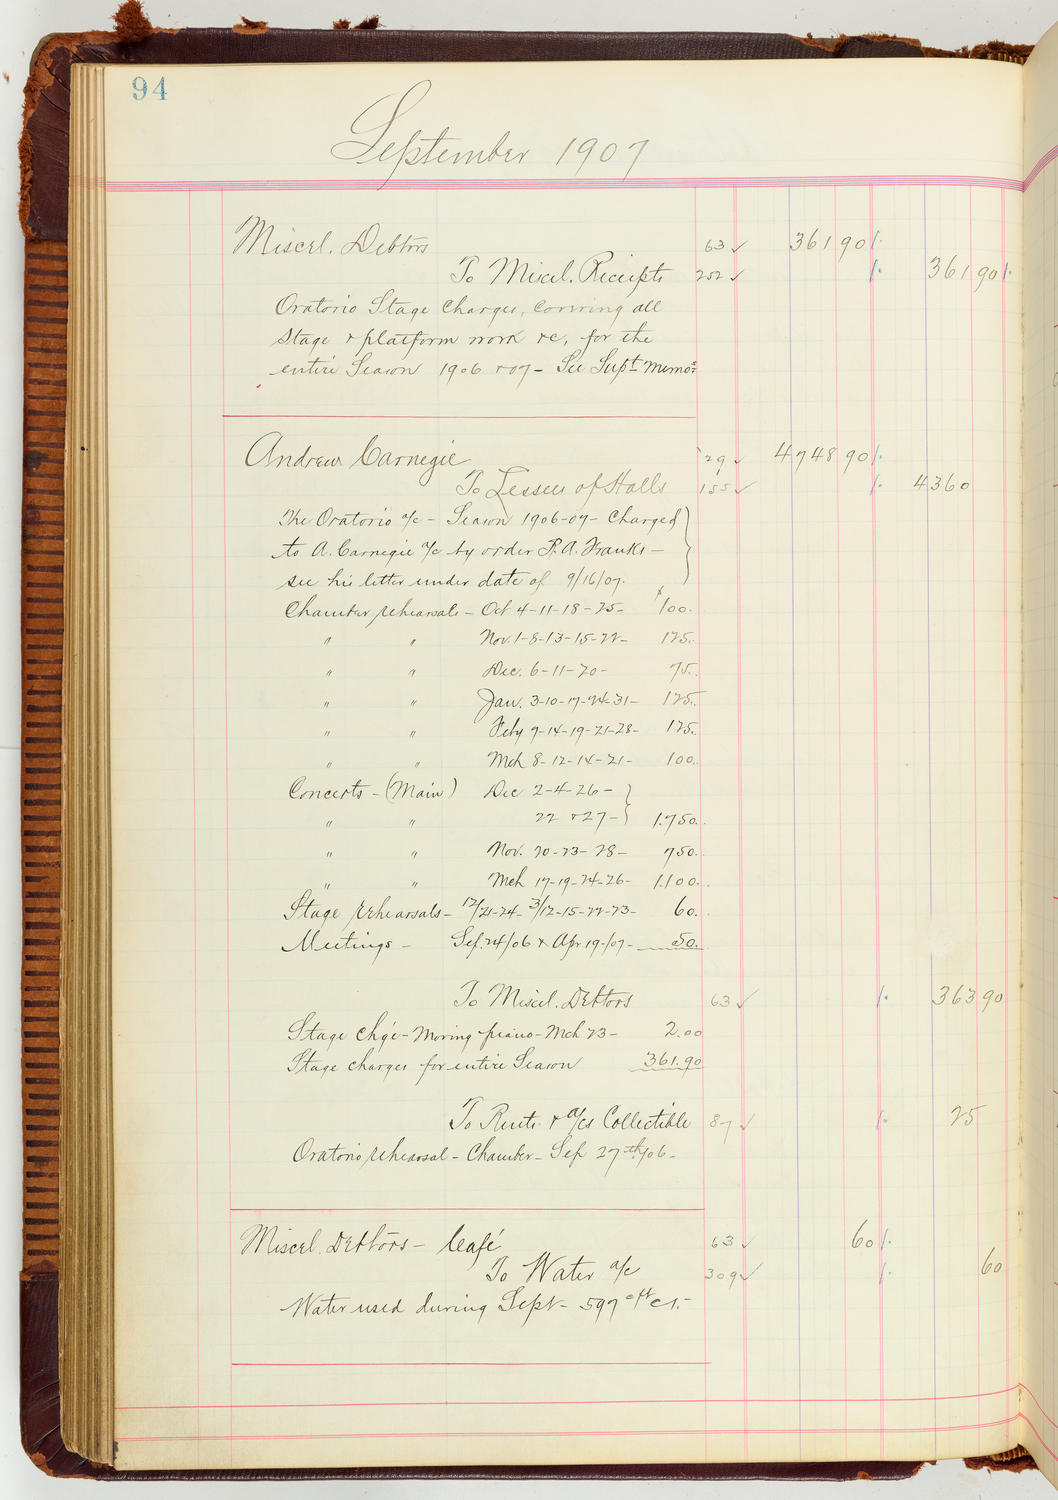 94
September 1907
Miscel. Debtors 63 ✓ 361 90
To Miscel. Receipts 252 ✓ 361 90
Oratorio Stage Charges, covering all
Stage & platform work &c, for the
entire Season 1906 & 07 - See Supt Memo:
Andrew Carnegie 29 ✓ 4748 90
To Lessees of Halls 155 ✓ 4360
The Oratorio a/c - Season 1906-07 - Charged
to A. Carnegie a/c by order R. A. Franks -
see his letter under date of 9/16/07.
Chamber rehearsals - Oct 4-11-18-25- $100.
" " Nov. 1-8-13-15-22- 125.
" " Dec. 6-11-20- 75.
" " Jan. 3-10-17-24-31- 125.
" " Feby 7-14-19-21-28- 125.
" " Mch 8-12-14-21- 100.
Concerts - (Main) Dec 2-4-26-
" " 22 & 27- 1.750.
" " Nov. 20-23-28- 750.
" " Mch 17-19-24-26- 1.100.
Stage rehearsals - 12/21-24- 3/12-15-22-23- 60.
Meetings - Sep. 24/06 & Apr 19/07- 50.
To Miscel. Debtors 63 ✓ 363 90
Stage chge - Moving piano - Mch 23- 2.00
Stage charges for entire Season 361.90
To Rents & a/cs Collectible 87 ✓ 25
Oratorio rehearsal - Chamber - Sep 27th/06-
Miscel. Debtors - Cafe 63 ✓ 60
To Water a/c 309 ✓ 60
Water used during Sept - 597 cft